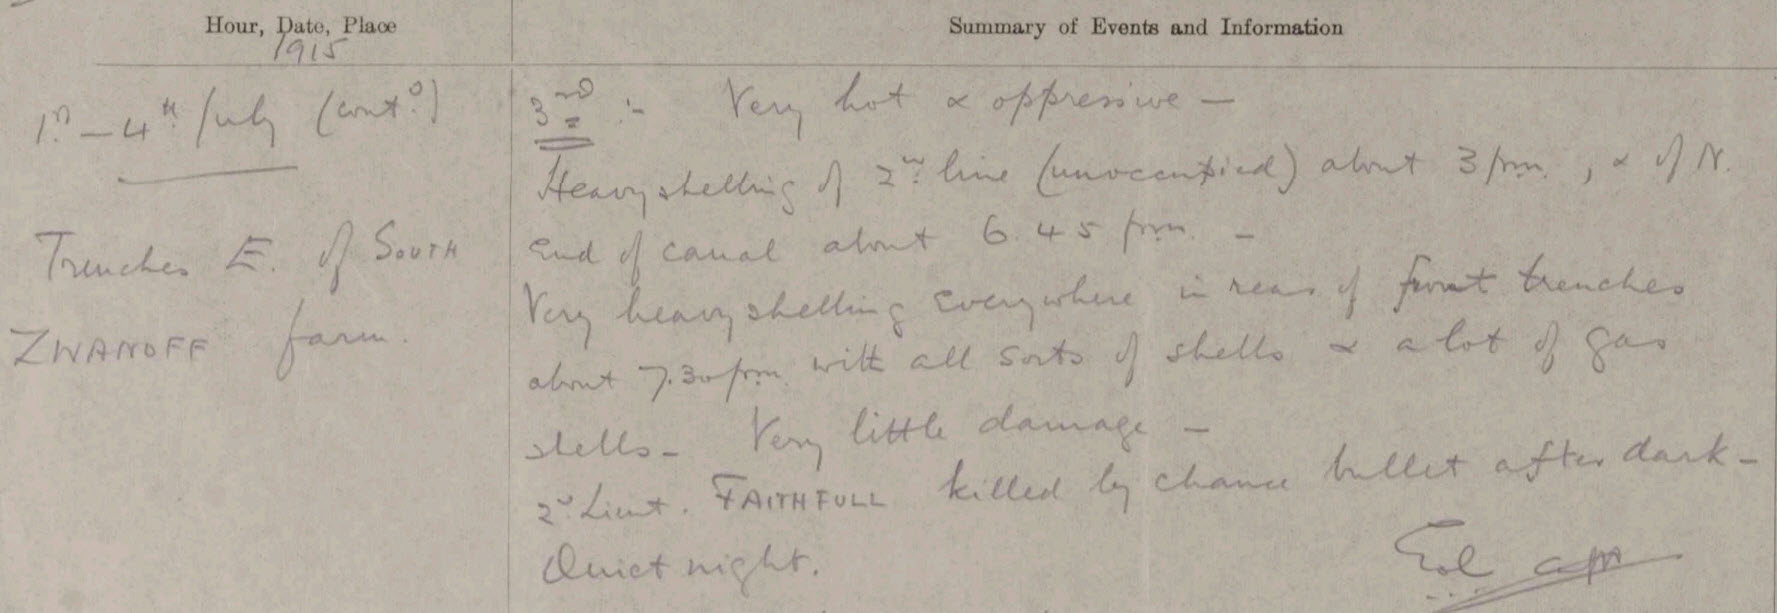 Hour, Date, Place
1915
Summary of Events and Information
1st – 4th July (contd)
Trenches E. of SOUTH
ZWANOFF farm.
3rd :- Very hot & oppressive –
Heavy shelling of 2nd line (unoccupied) about 3 pm., & of N.
End of canal about 6.45 pm. –
Very heavy shelling everywhere in rear of front trenches
about 7.30 pm. with all sorts of shells & a lot of gas
shells – Very little damage –
2nd Lieut. FAITHFULL killed by chance bullet after dark –
Quiet night.